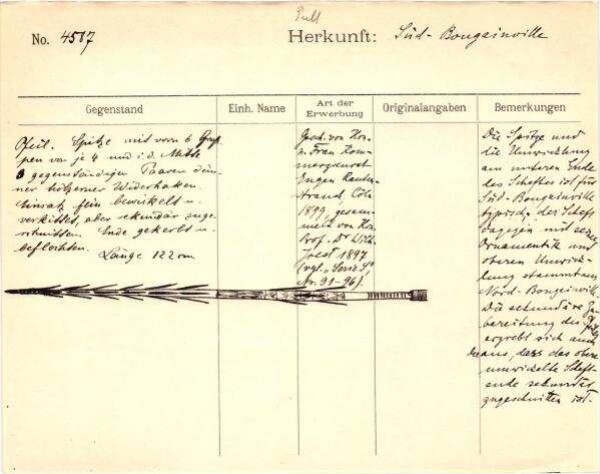 Pull
No. 4587
Herkunft: Süd-Bougainville
Gegenstand
Einh. Name
Art der Erwerbung
Originalangaben
Bemerkungen
Pfeil. Spitze mit vorn 6 Grup-
pen von je 4 und i. d. Mitte
3 gegenständigen Paaren dün-
ner hölzerner Widerhaken.
Einsatz fein bewickelt u.
verkittet, aber sekundär zuge-
schnitten. Ende gekerbt u.
beflochten.
Länge 122 cm
Gesch. von Hrn.
u. Frau Kom-
merzienrat
Eugen Rauten-
strauch, Cöln
1899, gesam-
melt von Hrn.
Prof. Dr. Wilh.
Joest 1897
Nr. 91-96).
Die Spitze und
die Umwicklung
am unteren Ende
des Schaftes ist für
Süd-Bougainville
typisch, der Schaft
dagegen mit seiner
Ornamentik und
oberen Umwick-
lung stammt aus
Nord-Bougainville.
Die sekundäre Zu-
bereitung des
ergiebt sich auch
daraus, dass das obere
umwickelte Schaft-
ende sekundär
zugeschnitten ist.